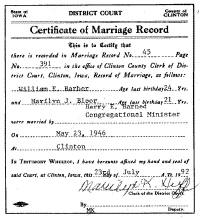 State of IOWA
DISTRICT COURT
County of CLINTON
Certificate of Marriage Record
This is to Certify that
there is recorded in Marriage Record No. 45 Page
No. 391 in the office of Clinton County Clerk of Dis-
trict Court, Clinton, Iowa, Record of Marriage, as follows:
William E. Harber Age last birthday 24 Yrs.
and Marilyn J. Bloor Age last birthday 21 Yrs.
were married by Harry E. Barner
Congregational Minister
On May 23, 1946
At Clinton
In Testimony Whereof, I have hereunto affixed my hand and seal of
said Court, at Clinton, Iowa, this 23rd day of July A.D. 1992
Clerk of the District Court
By MK Deputy.